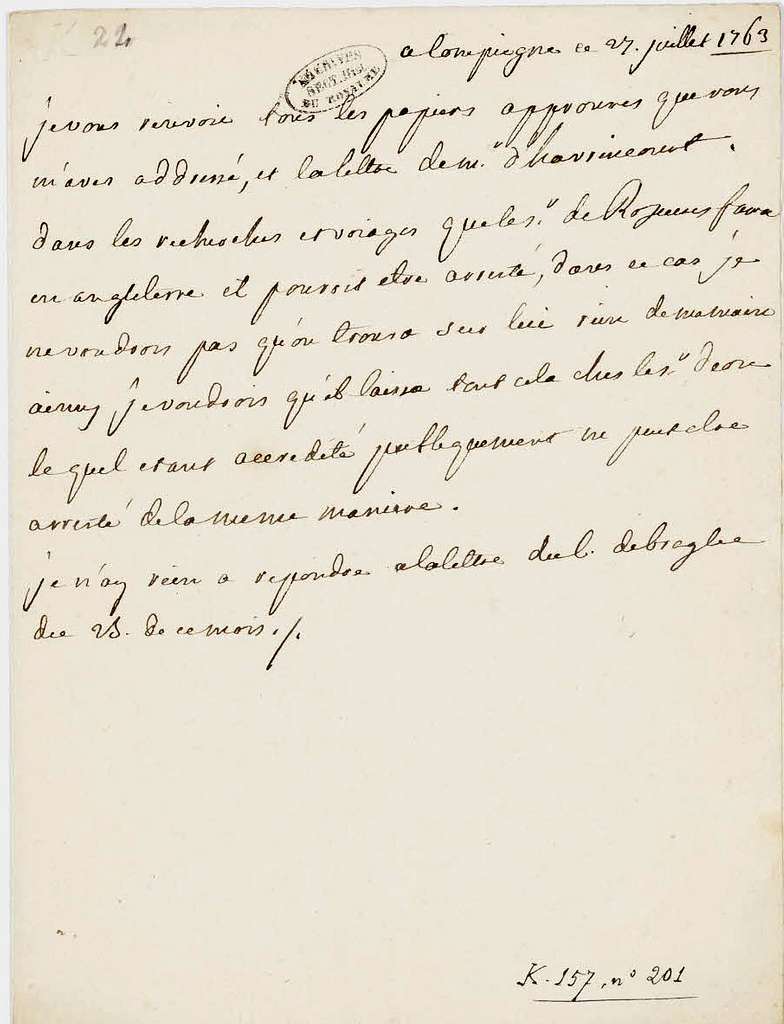 22
a Compiegne ce 27. juillet 1763
ARCHIVES
SECT. HIST.
DU ROYAUME
je vous renvoie tous les papiers approuves que vous
m'aves addressé, et la lettre de m.r d'havrincourt.
dans les recherches et voiages que le s.r de Rozieres faira
en angleterre il pouroit etre aresté, dans ce cas je
ne voudrois pas qu'on trouva sur lui rien de ma main
ainsy je voudrois qu'il laissa tout cela ches le s.r deon
le quel etant accredité publiquement ne peut etre
aresté de la meme maniere.
je n'ay rien a repondre a la lettre du C. de broglie
du 23. de ce mois./.
K. 157, n° 201